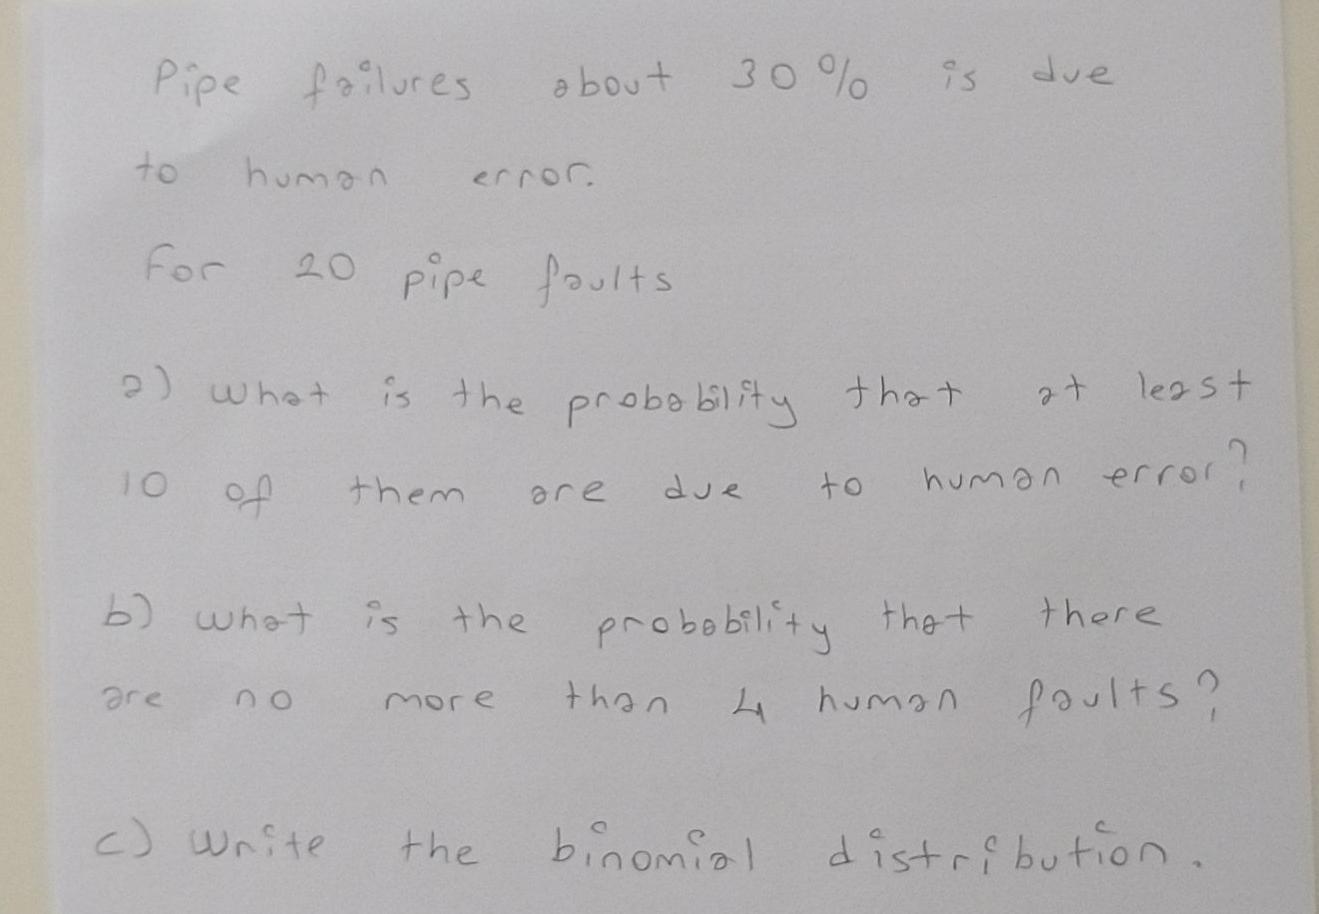 Pipe failures about 30% is due
to human error.
For 20 pipe faults
a) what is the probability that at least
10 of them are due to human error?
b) what is the probability that there
are no more than 4 human faults?
c) write the binomial distribution.